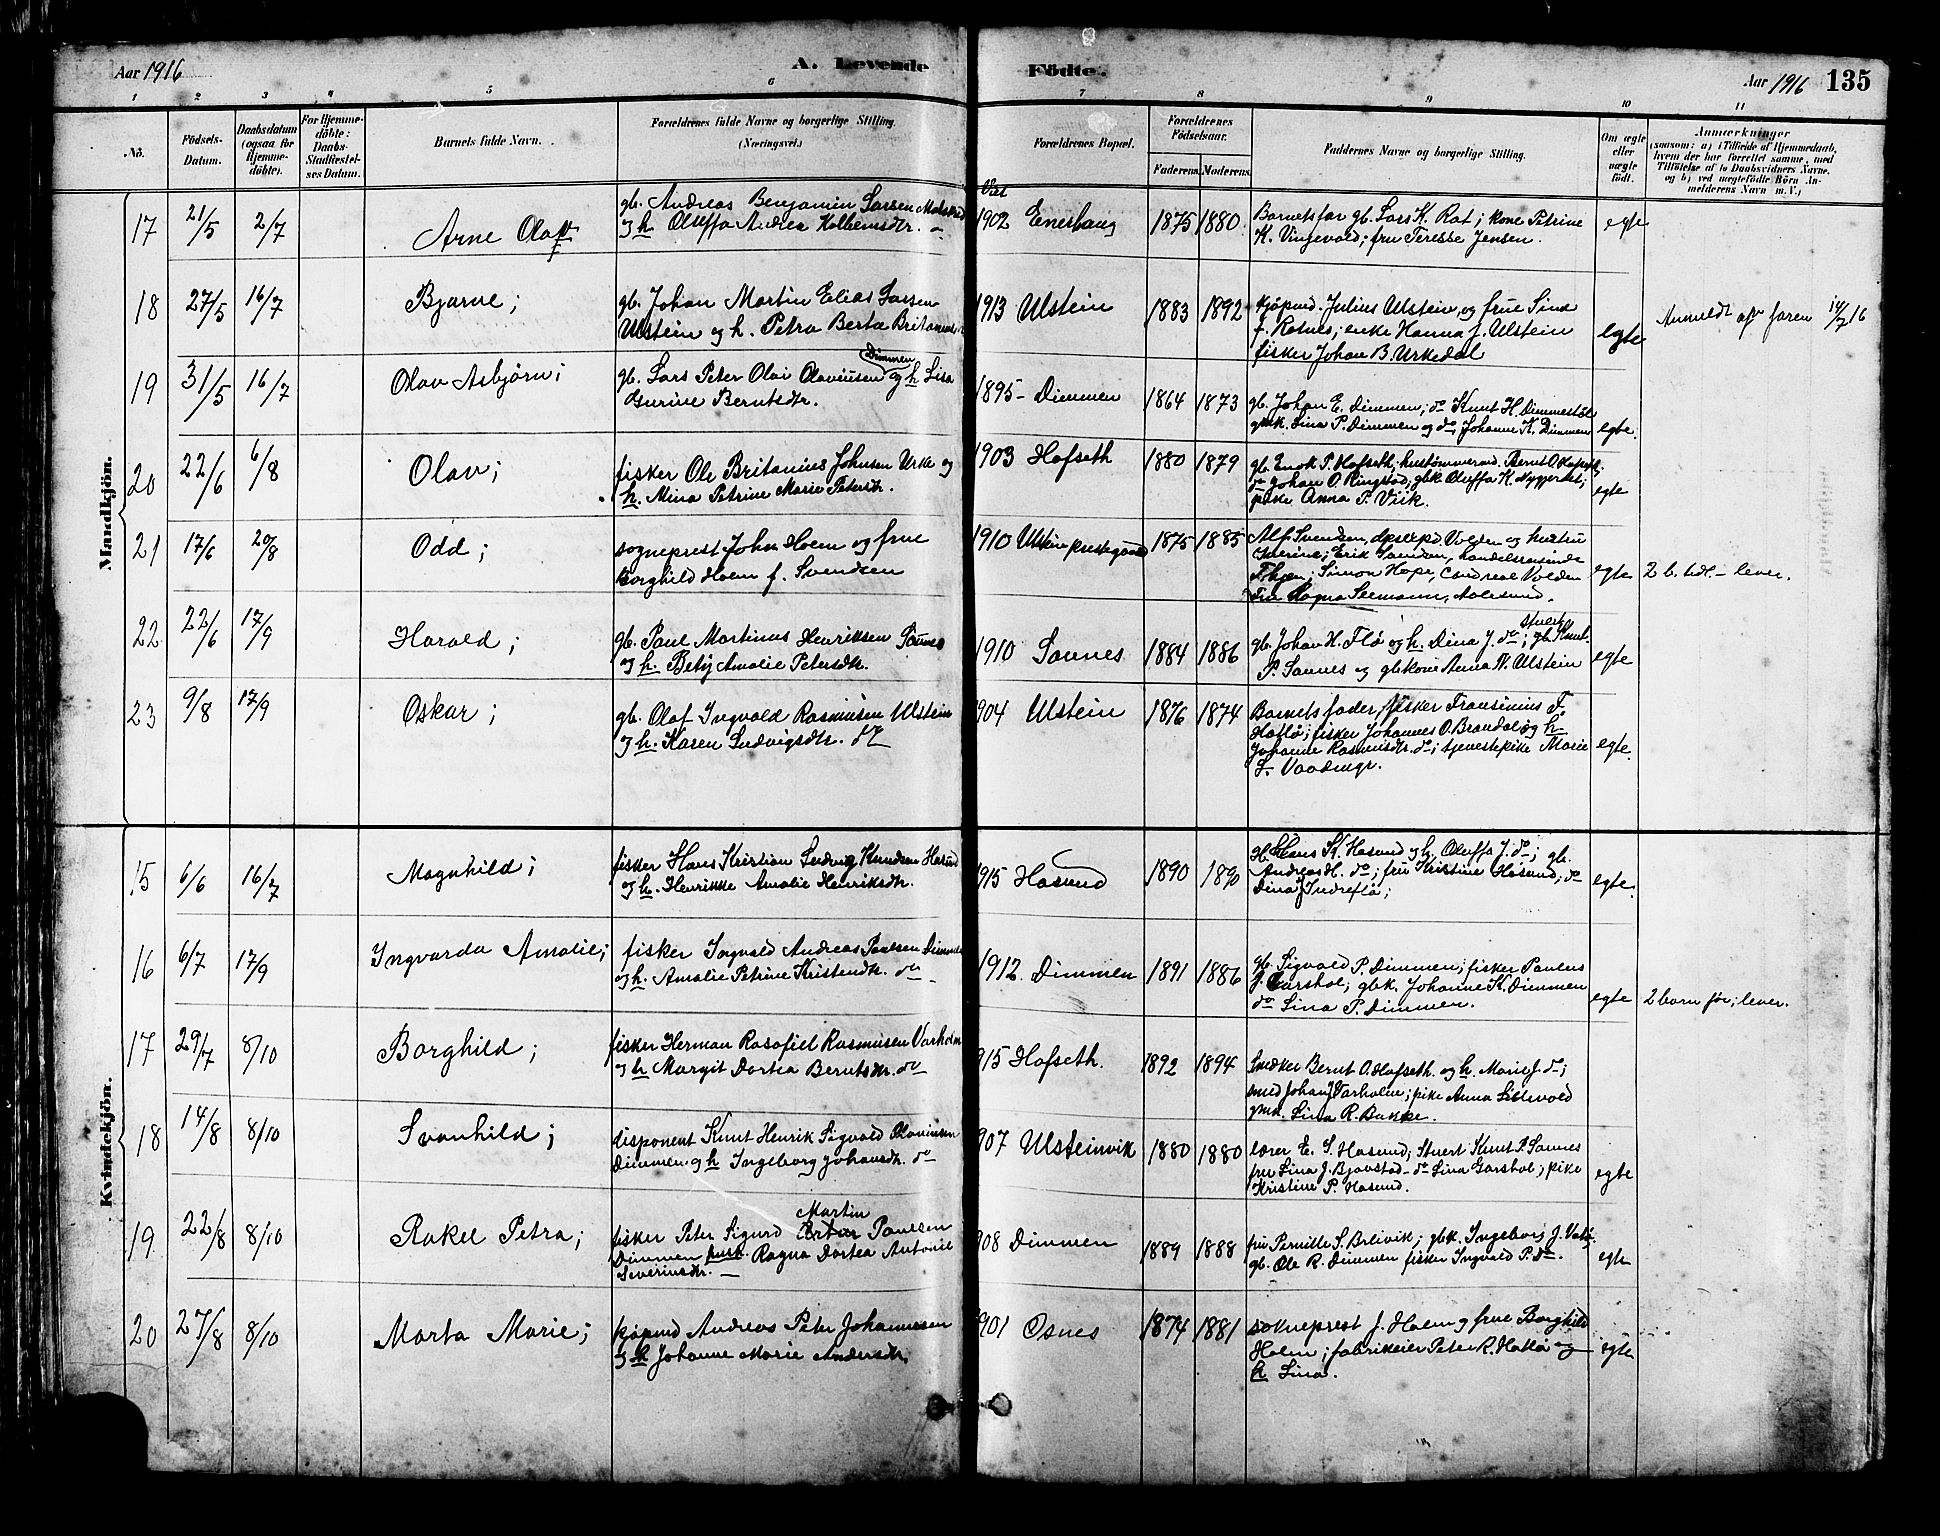 Aar 1916
A. Levende
Födte.
Aar 1916
135
1 2 3 4 5 6 7 8 9 10 11
No.
Födsels-Datum.
Daabsdatum (ogsaa för Hjemme-döbte).
For Hjemme-döbte: Daabs-Stadfæstel-ses Datum.
Barnets fulde Navn.
Forældrenes fulde Navne og borgerlige Stilling. (Næringsvei.)
Forældrenes Bopæl.
Forældrenes Födselsaar.
Faderens. Moderens.
Faddernes Navne og borgerlige Stilling.
Om ægte eller uægte födt.
Anmærkninger
(saasom: a) i Tilfælde af Hjemmedaab, hvem der har forrettet samme, med Tilföielse af to Daabsvidners Navne, og b) ved uægtefödte Börn An-melderens Navn m. V.)
Mandkjön.
17 21/5 2/7 Arne Olaf
gb. Andreas Benjamin Larsen
og h. Oluffa Andrea Kolbensdtr. do
Viet
1902 Enerhaug 1875 1880
Barnets far gb. Lars K. Rot; kone Petrine
K. Vingevold; fru Teresse Jensen.
egte
18 27/5 16/7 Bjarne;
gb. Johan Martin Elias Larsen
Ulstein og h. Petra Berta
1913 Ulstein 1883 1892
kjøpmd. Julius Ulstein og frue Sina
f. Rotnes; enke Hanna J. Ulstein
fisker Johan B. Urkedal
egte
Anmeldt af faren 14/7 16
19 31/5 16/7 Olav Asbjörn;
gb. Lars Peter Olai Olaviusen Dimmen og h. Lina
Gurine Berntsdtr.
1895 - Dimmen 1864 1873
gb. Johan E. Dimmen; do Knut H. Dimmestöl
gbk. Lina P. Dimmen og do Johanne K. Dimmen
egte.
20 22/6 6/8 Olav;
fisker Ole Britanius Johnsen Urke og
h. Mina Petrine Marie Petersdtr.
1903 Hofseth 1880 1879
gb. Enok P. Hofseth; hustømmermd. Bernt O. Hofseth;
do Johan O. Ringstad; gbk. Oluffa K.
pike Anna P. Viik.
egte
21 17/6 20/8 Odd;
sogneprest John Hoem og frue
Borghild Hoem f. Svendsen
1910 Ulstein prestegaard 1875 1885
Alf Svendsen, Volden og hustru
Erik Svendsen, handelsreisende
Simon Hope, cand real Volden
Fru Ragna Seemann, Aalesund.
egte 2 b. tidl. - lever.
22 22/6 17/9 Harald;
gb. Paul Martinus Henriksen Saunes
og h. Bety Amalie Petersdtr.
1910 Saunes 1884 1886
gb. Johan H. Flø og h. Dina J. do; gb. Knut
P. Saunes og gbkone Anna N. Ulstein
egte
23 9/8 17/9 Oskar;
gb. Olaf Ingvald Rasmusen Ulstein
og h. Karen Ludvigsdtr. do
1904 Ulstein 1876 1874
Barnets fader, fisker Fransinius F.
Hatlø; fisker Johannes O. Brandal og h
Johanne Rasmusdtr. do; tjenestepike Marie
egte.
Kvindekjön.
15 6/6 16/7 Magnhild;
fisker Hans Kristian Ludvig Knudsen Hasund
og h. Henrikke Amalie Henriksdtr.
1915 Hasund 1890 1890
gb. Hans K. Hasund og h. Oluffa J. do; gb.
Andreas H. do; fru Kristine Hasund; do
Dina J Indreflø;
egte.
16 6/7 17/9 Ingvarda Amalie;
fisker Ingvald Andreas Paulsen Dimmen
og h. Amalie Petrine Kristendtr. do
1912. Dimmen 1891 1886
gb. Sigvald P. Dimmen; fisker Paulus
J. Garshol; gbk. Johanne K. Dimmen
do Lina P. Dimmen.
egte 2 barn før; lever.
17 29/7 8/10 Borghild;
fisker Herman Rasmusen Varholm
og h Margit Dortea Berntsdtr. do
1915 Hofseth. 1892 1894
Snekker Bernt O. Hofseth og h. Marie J. do;
smed Johan J Varholm; pike Anna
gmk. Lina R. Bakke.
18 14/8 8/10 Svanhild;
disponent Knut Henrik Sigvald Olaviusen
Dimmen og h Ingeborg Johansdtr. do
1907 Ulsteinvik 1880 1880
lærer E. S. Hasund; Stuert Knut P. Saunes
fru Lina J. Bjaastad - do Lina Garshol; pike
Kristine P. Hasund.
egte
19 22/8 8/10 Rakel Petra;
fisker Peter Sigurd Martin Paulsen
Dimmen hust. Ragna Dortea Antonie
Severinsdtr. —
1908 Dimmen 1889 1888
fru Pernille S. Breivik; gbk. Ingeborg J.
gb. Ole R. Dimmen fisker Ingvald P. do.
egte
20 27/8 8/10 Marta Marie;
kjøpmd Andreas Peter Johannesen
og h Johanne Marie Andersdtr.
1901 Osnes 1874 1881
sokneprest J. Hoem og frue Borghild
Hoem; fabrikeier Peter R. Hatlø og
h Lina.
egte